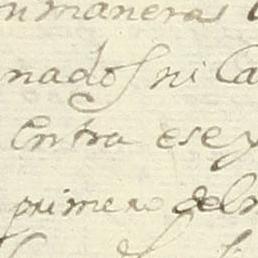 n maneras
nados ni Ca
entra ese y
primero del